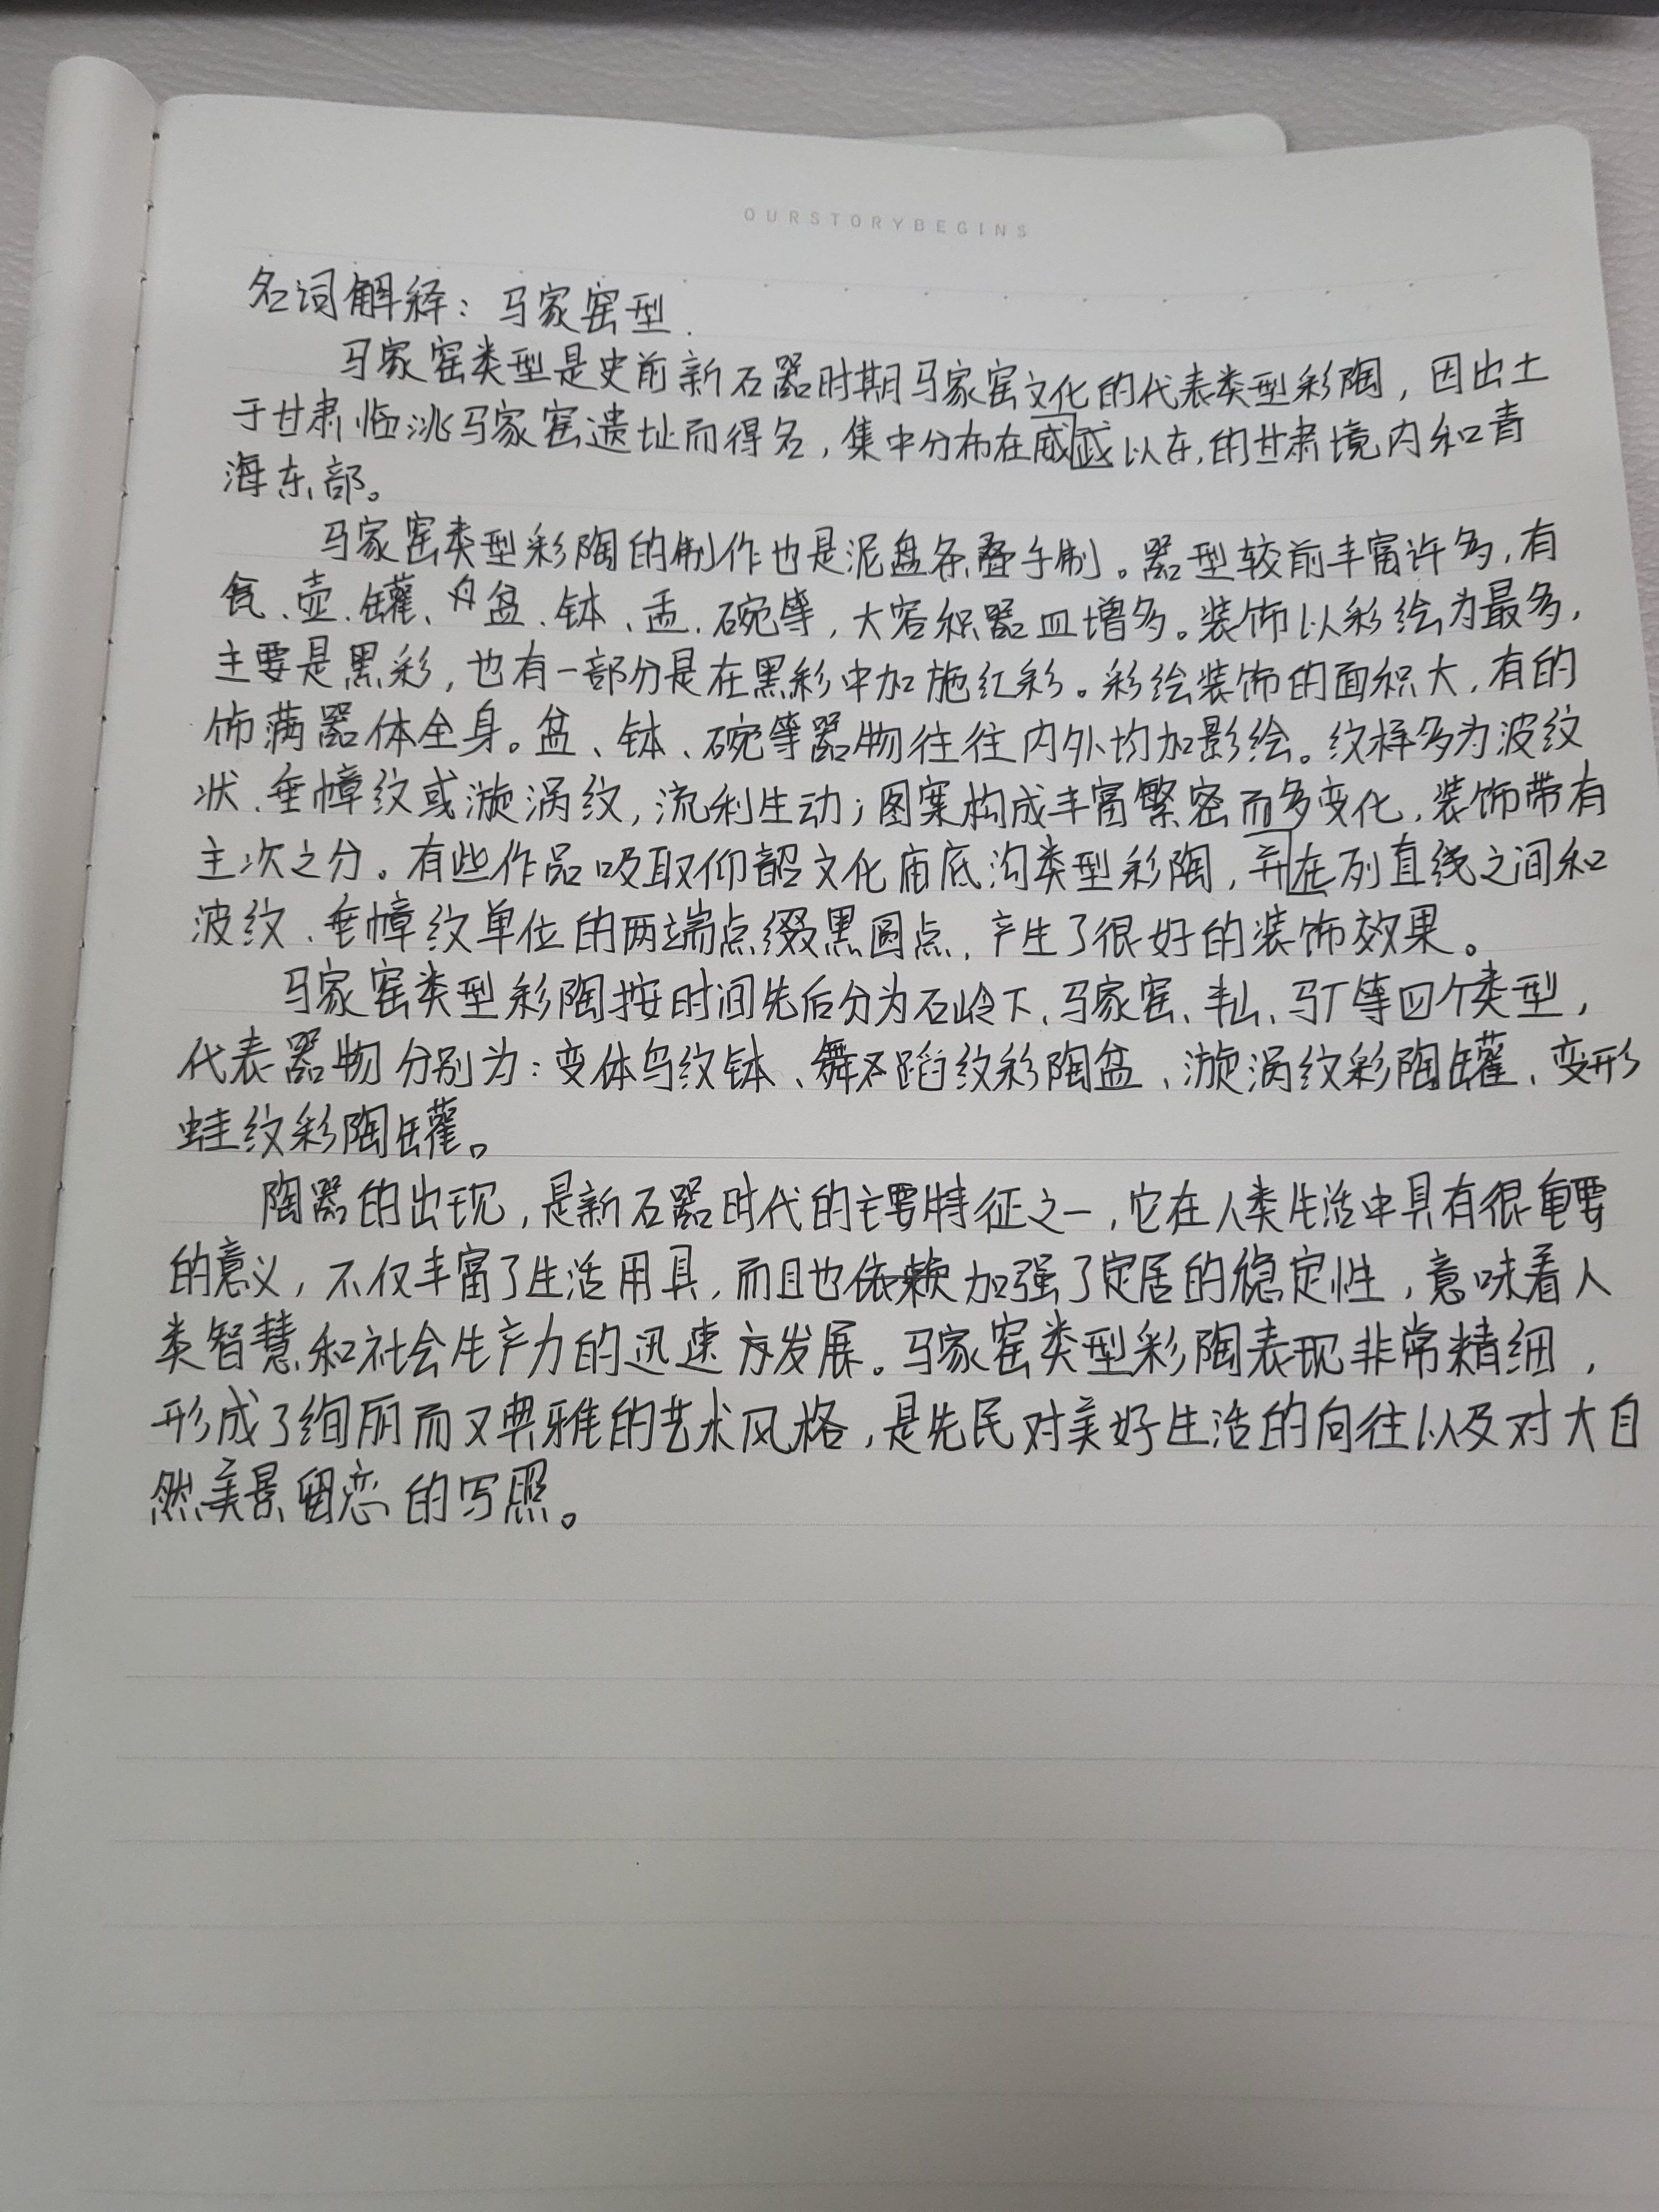 OURSTORYBEGINS
名词解释：马家窑型.
马家窑类型是史前新石器时期马家窑文化的代表类型彩陶，因出土
于甘肃临洮马家窑遗址而得名，集中分布在威武以东的甘肃境内和青
海东部。
马家窑类型彩陶的制作也是泥盘条叠手制。器型较前丰富许多，有
瓮、壶、罐、盆、钵、盂、碗等，大容积器皿增多。装饰以彩绘为最多，
主要是黑彩，也有一部分是在黑彩中加施红彩。彩绘装饰的面积大，有的
饰满器体全身。盆、钵、碗等器物往往内外均加影绘。纹样多为波纹
状、垂幛纹或漩涡纹，流利生动；图案构成丰富繁密而多变化，装饰带有
主次之分。有些作品吸取仰韶文化庙底沟类型彩陶，并在列直线之间和
波纹、垂幛纹单位的两端点缀黑圆点，产生了很好的装饰效果。
马家窑类型彩陶按时间先后分为石岭下、马家窑、半山、马厂等四个类型，
代表器物分别为：变体鸟纹钵、舞蹈纹彩陶盆、漩涡纹彩陶罐、变形
蛙纹彩陶罐。
陶器的出现，是新石器时代的主要特征之一，它在人类生活中具有很重要
的意义，不仅丰富了生活用具，而且也加强了定居的稳定性，意味着人
类智慧和社会生产力的迅速发展。马家窑类型彩陶表现非常精细，
形成了绚丽而又典雅的艺术风格，是先民对美好生活的向往以及对大自
然美景留恋的写照。